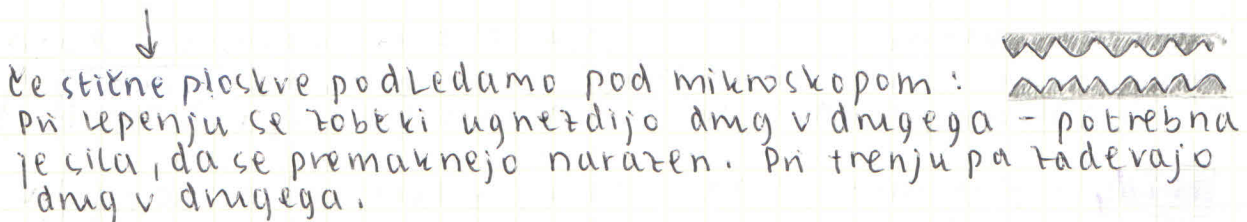 če stične ploskve podledamo pod mikroskopom:
pri lepenju se zobčki ugnezdijo drug v drugega - potrebna
je sila, da se premaknejo narazen. Pri trenju pa zadevajo
drug v drugega.